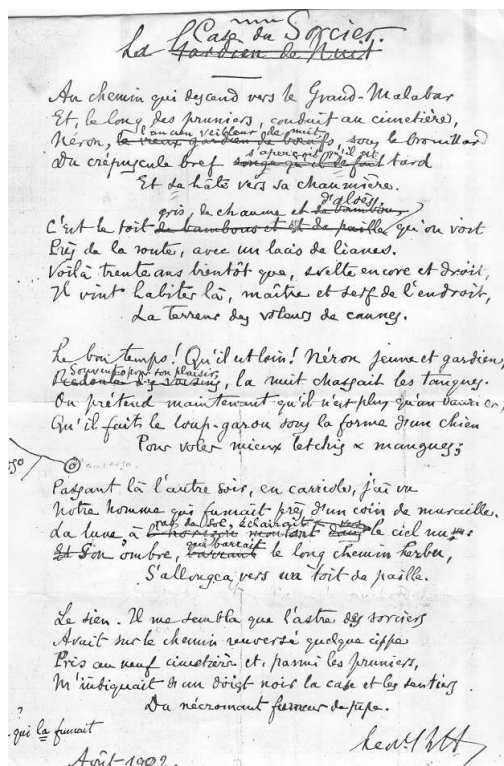 La Case du Sorcier.
Gardien de Nuit
Au chemin qui descend vers le Grand-Malabar
Et, le long des pruniers, conduit au cimetière,
l'ancien veilleur de nuit,
Néron, le vieux gardien de bœufs, sous le brouillard
s'aperçoit qu'il est
Du crépuscule bref songe qu'il se fait tard
Et se hâte vers sa chaumière.
d'aloès,
gris de chaume et de bambous
C'est le toit de bambous et de paille qu'on voit
Près de la route, avec un lacis de lianes.
Voilà trente ans bientôt que, svelte encore et droit,
Il vint habiter là, maître et serf de l'endroit,
La terreur des voleurs de cannes.
Le bon temps! Qu'il est loin! Néron jeune et gardien,
Souvent, pour son plaisir,
Redouté des voisins, la nuit chassait les tangues.
On prétend maintenant qu'il n'est plus qu'un vaurien,
Qu'il fait le loup-garou sous la forme d'un chien
Pour voler mieux letchis & mangues;
Passant là l'autre soir, en carriole, j'ai vu
Notre homme qui fumait près d'un coin de muraille.
ras du sol, éclairait
La lune, à l'horizon montant dans le ciel nu
qui barrait
Et Son ombre, barrant le long chemin herbu,
S'allongea vers un toit de paille.
Le sien. Il me sembla que l'astre des sorciers
Avait sur le chemin renversé quelque cippe
Pris au neuf cimetière et, parmi les pruniers,
M'indiquait d'un doigt noir la case et les sentiers
Du nécromant fumeur de pipe.
?
qui la fumait
Août 1902.